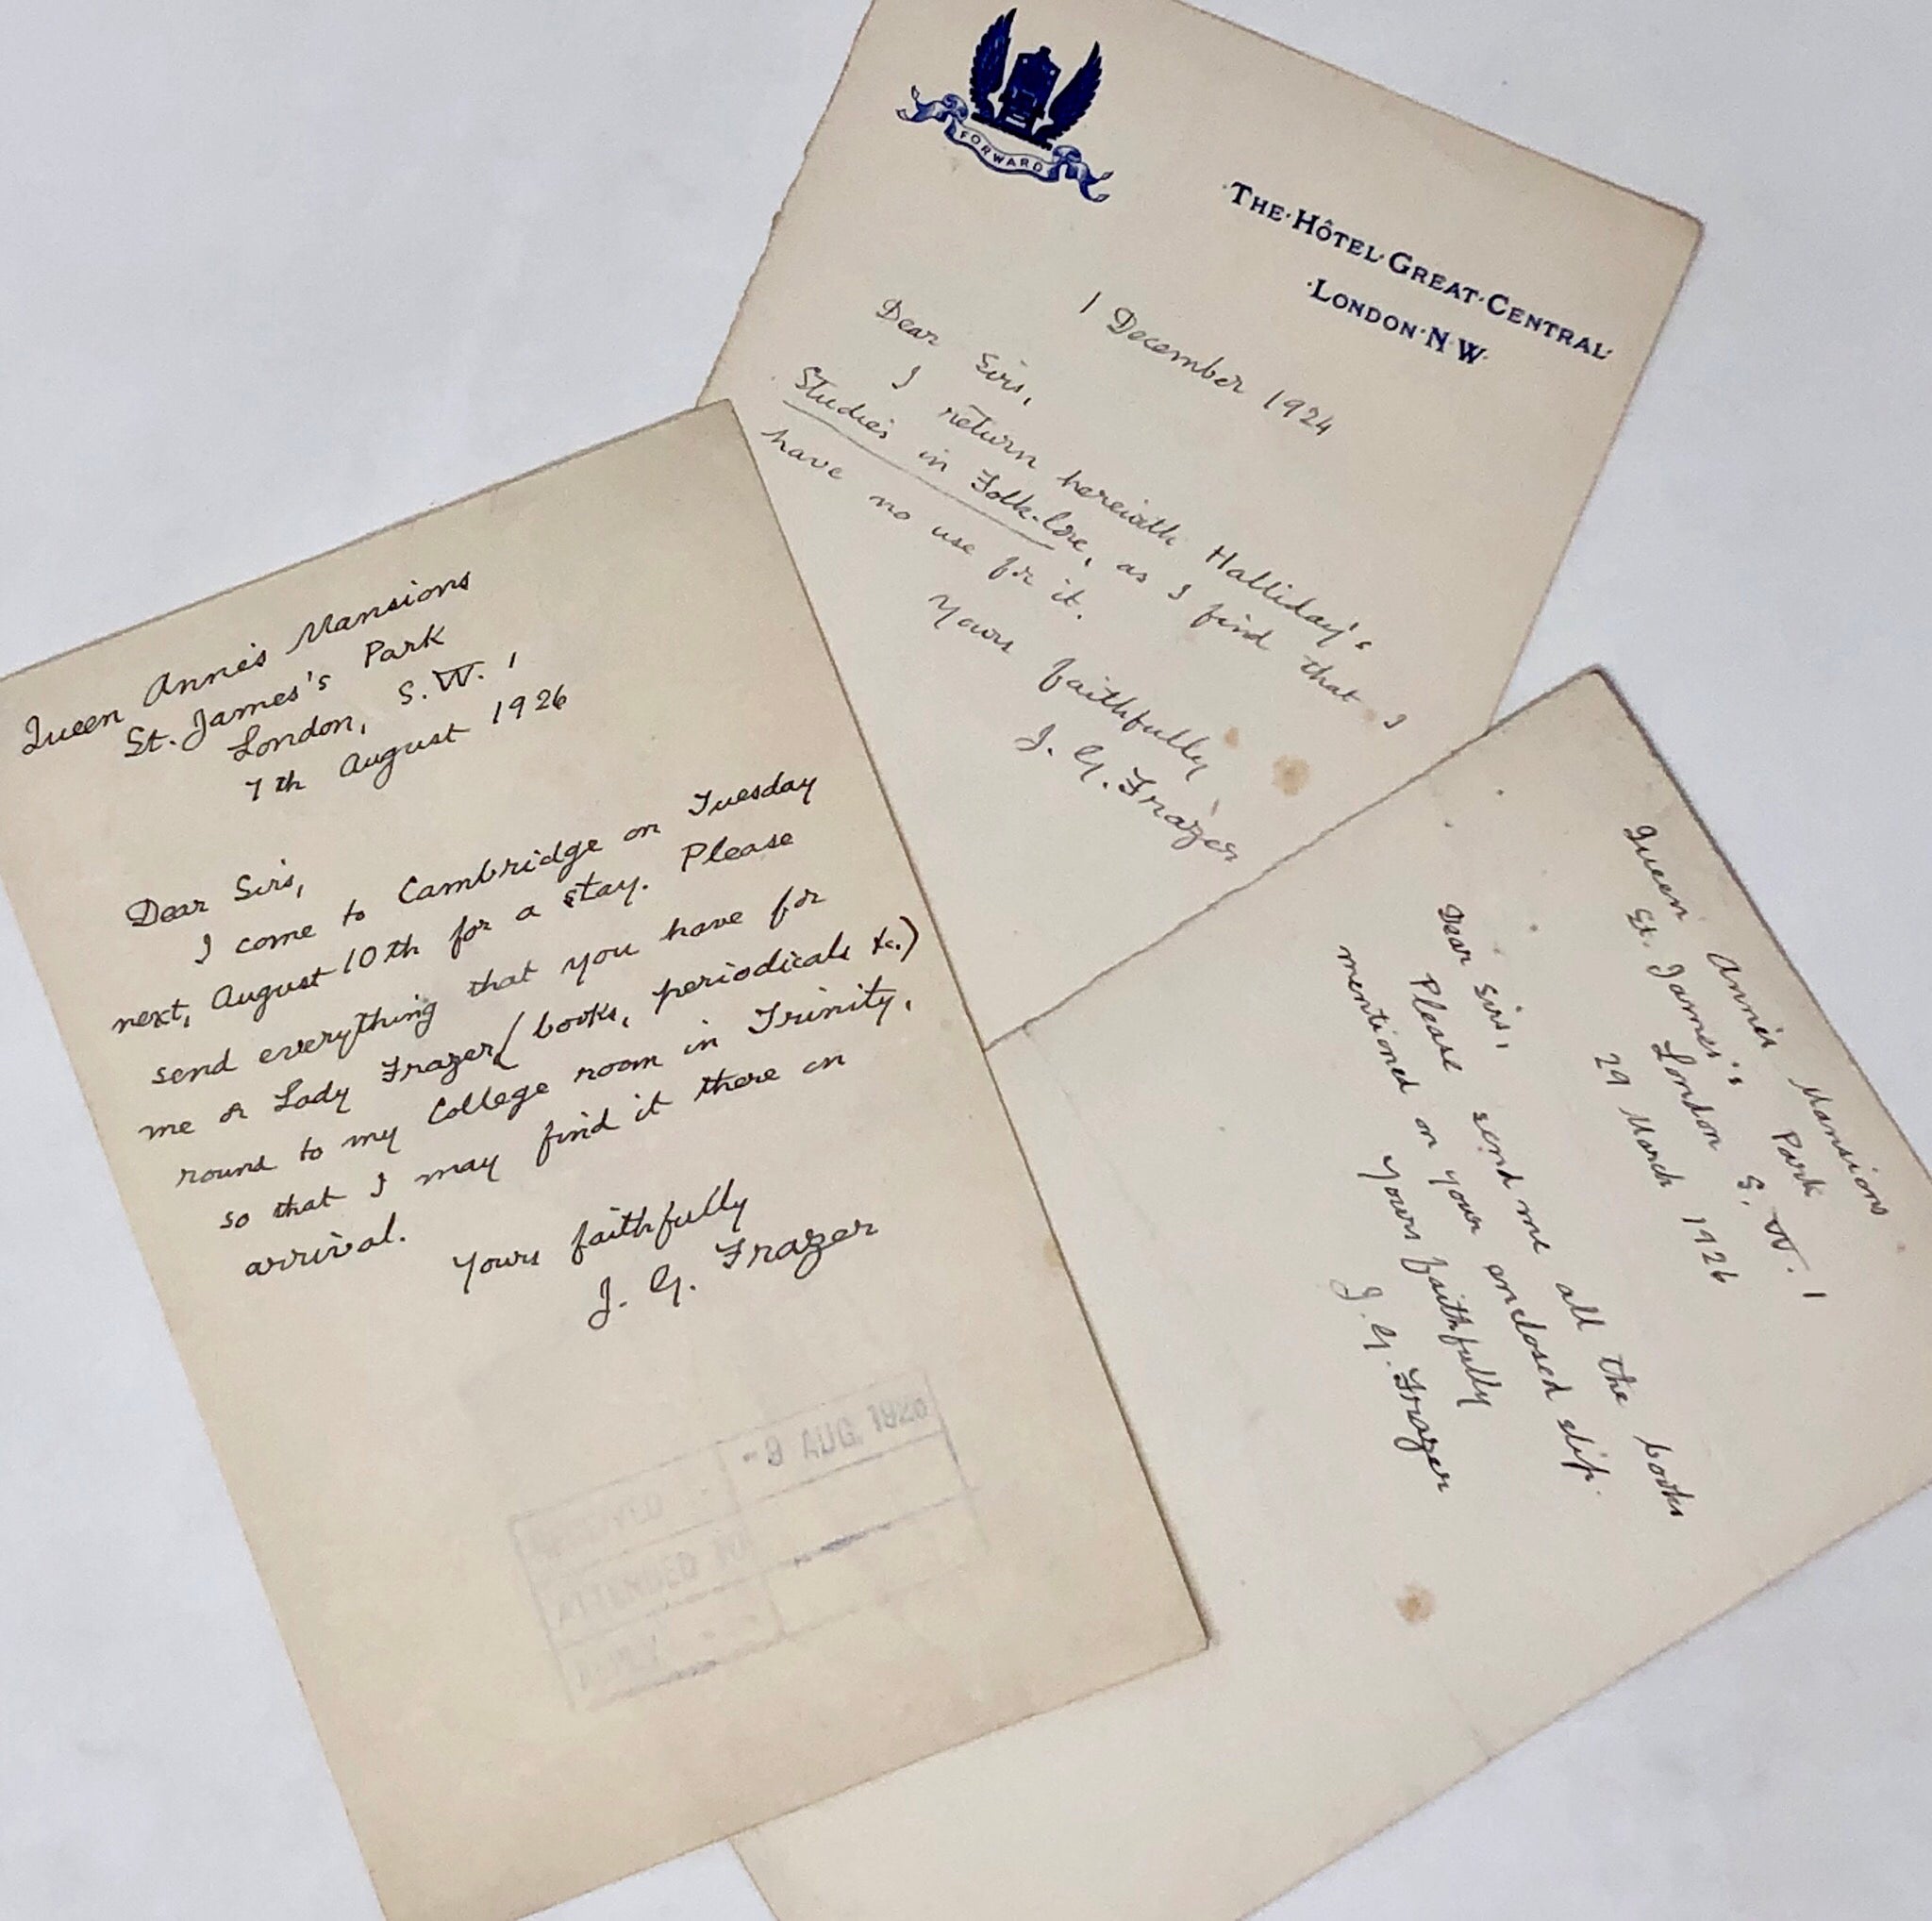 FORWARD
·THE·HÔTEL·GREAT·CENTRAL·
·LONDON·N·W·
1 December 1924
Dear Sirs,
I return herewith Halliday's
Studies in Folk-lore, as I find that I
have no use for it.
Yours faithfully
J. G. Frazer
Queen Anne's Mansions
St. James's Park
London, S.W. 1
7th August 1926
Dear Sirs,
I come to Cambridge on Tuesday
next, August 10th for a stay. Please
send everything that you have for
me or Lady Frazer (books, periodicals &c.)
round to my College room in Trinity,
so that I may find it there on
arrival.
Yours faithfully
J. G. Frazer
-9 AUG. 1926
ATTENDED TO
Queen Anne's Mansions
St. James's Park
London S. W. 1
29 March 1926
Dear Sirs,
Please send me all the books
mentioned on your enclosed slip.
Yours faithfully
J. G. Frazer